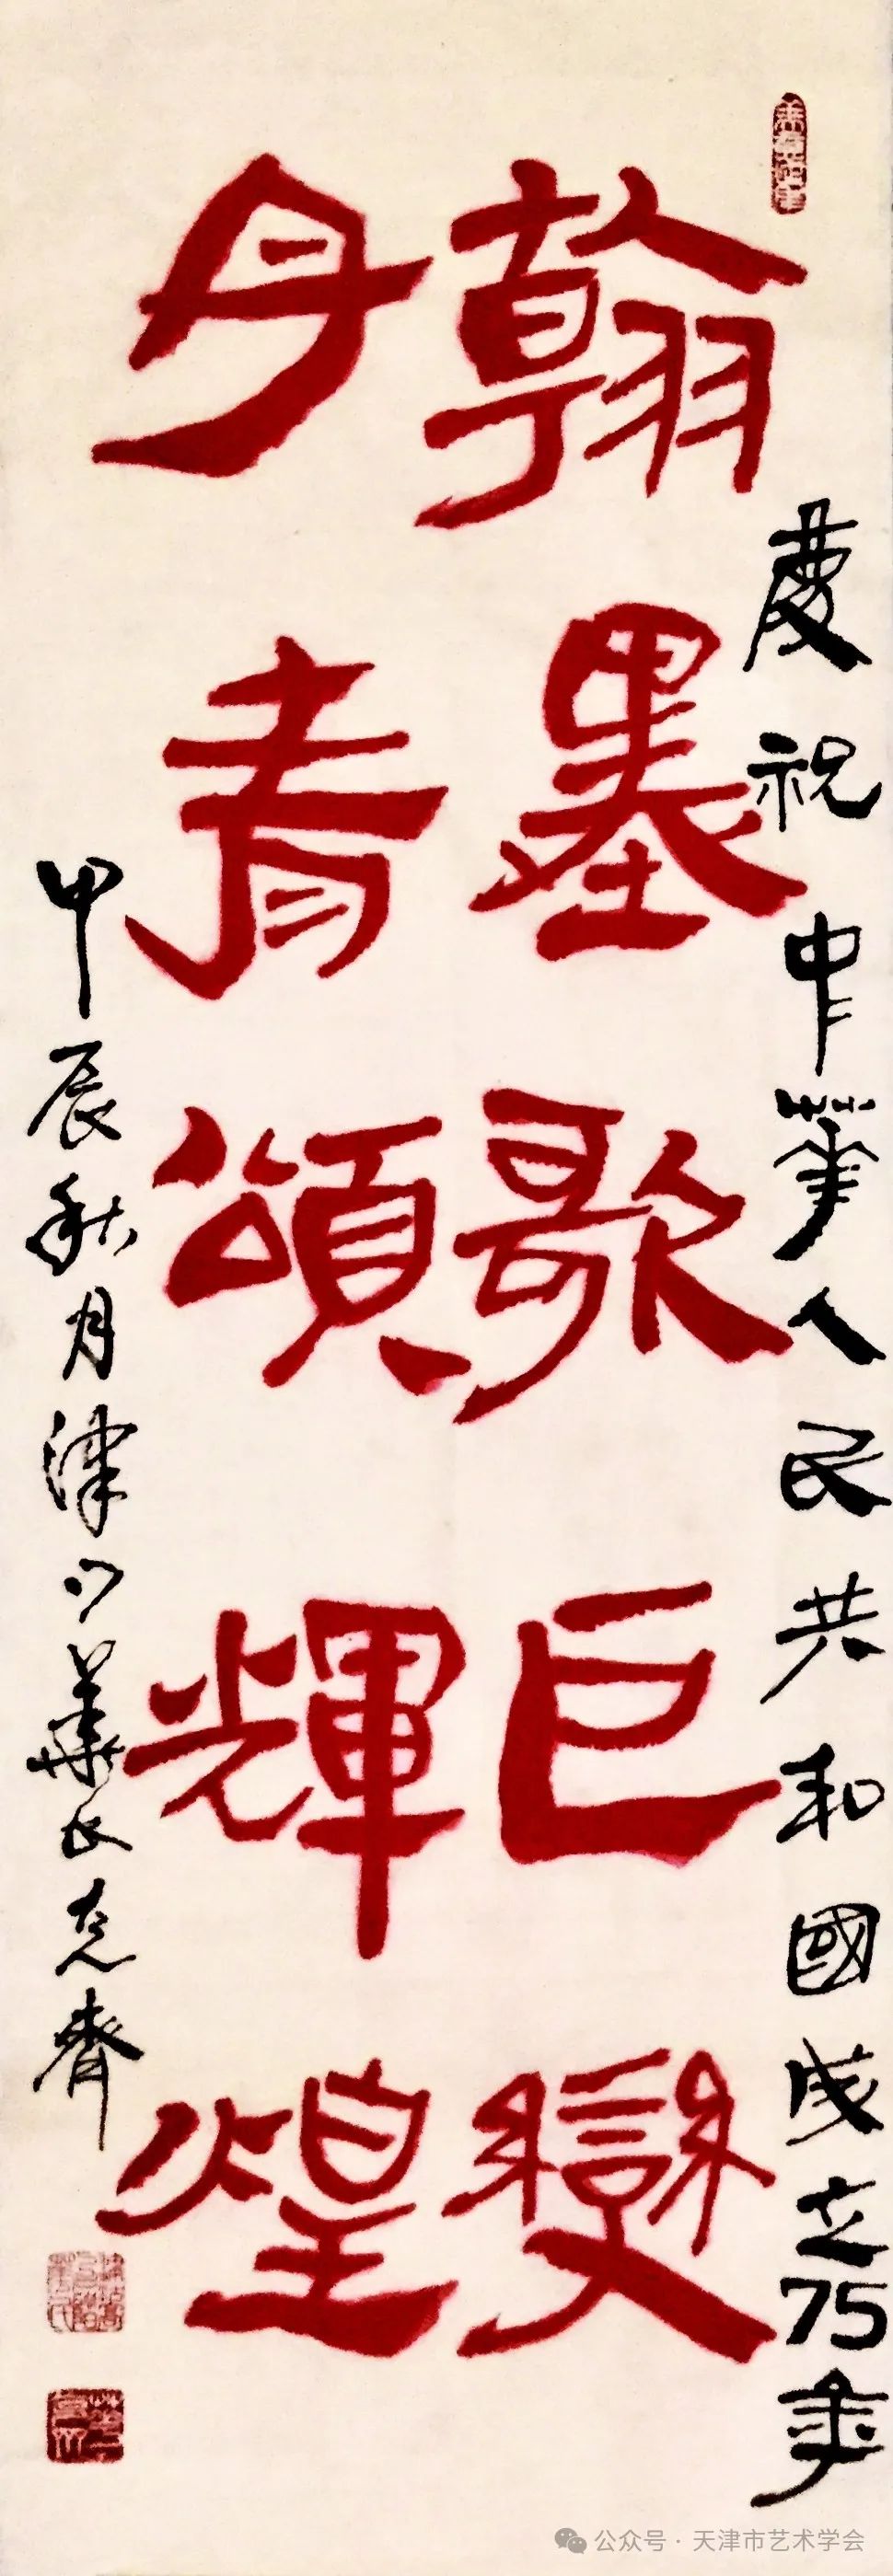 慶祝中華人民共和國成立75年
翰墨歌巨變
丹青頌輝煌
甲辰秋月津門華民克齊
公众号·天津市艺术学会